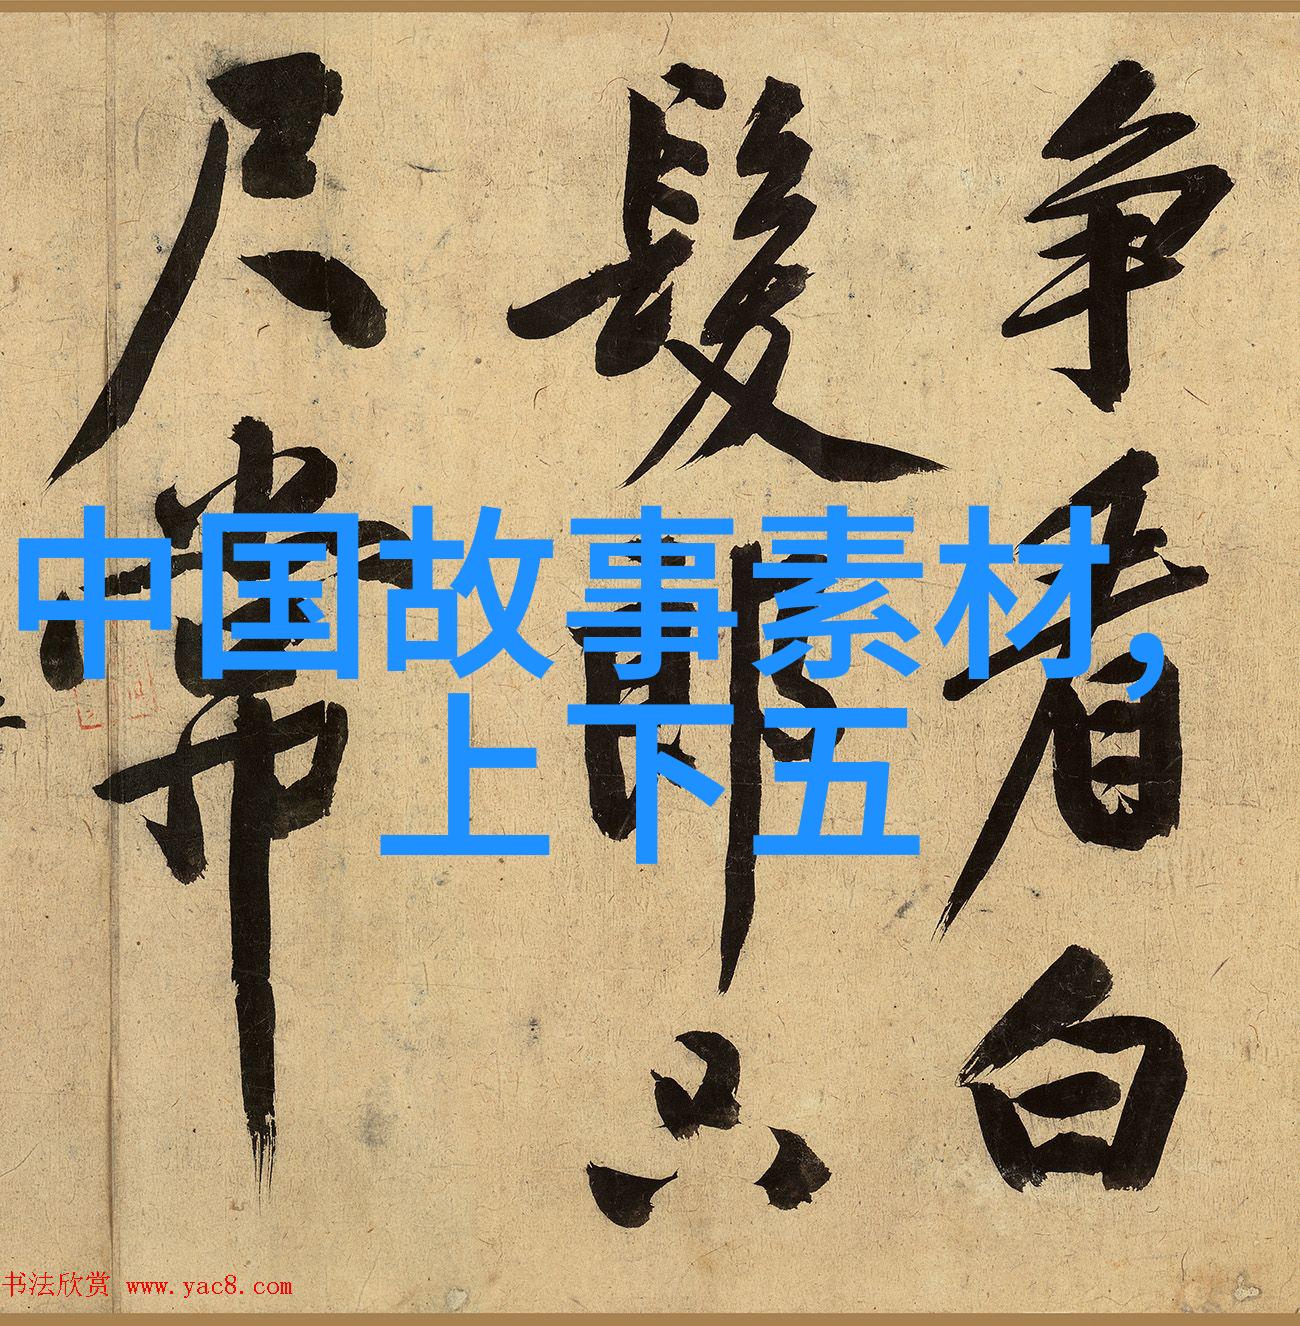 争看白
髮郎只
尺常
中国故事素材,
上下五
书法欣赏 www.yac8.com